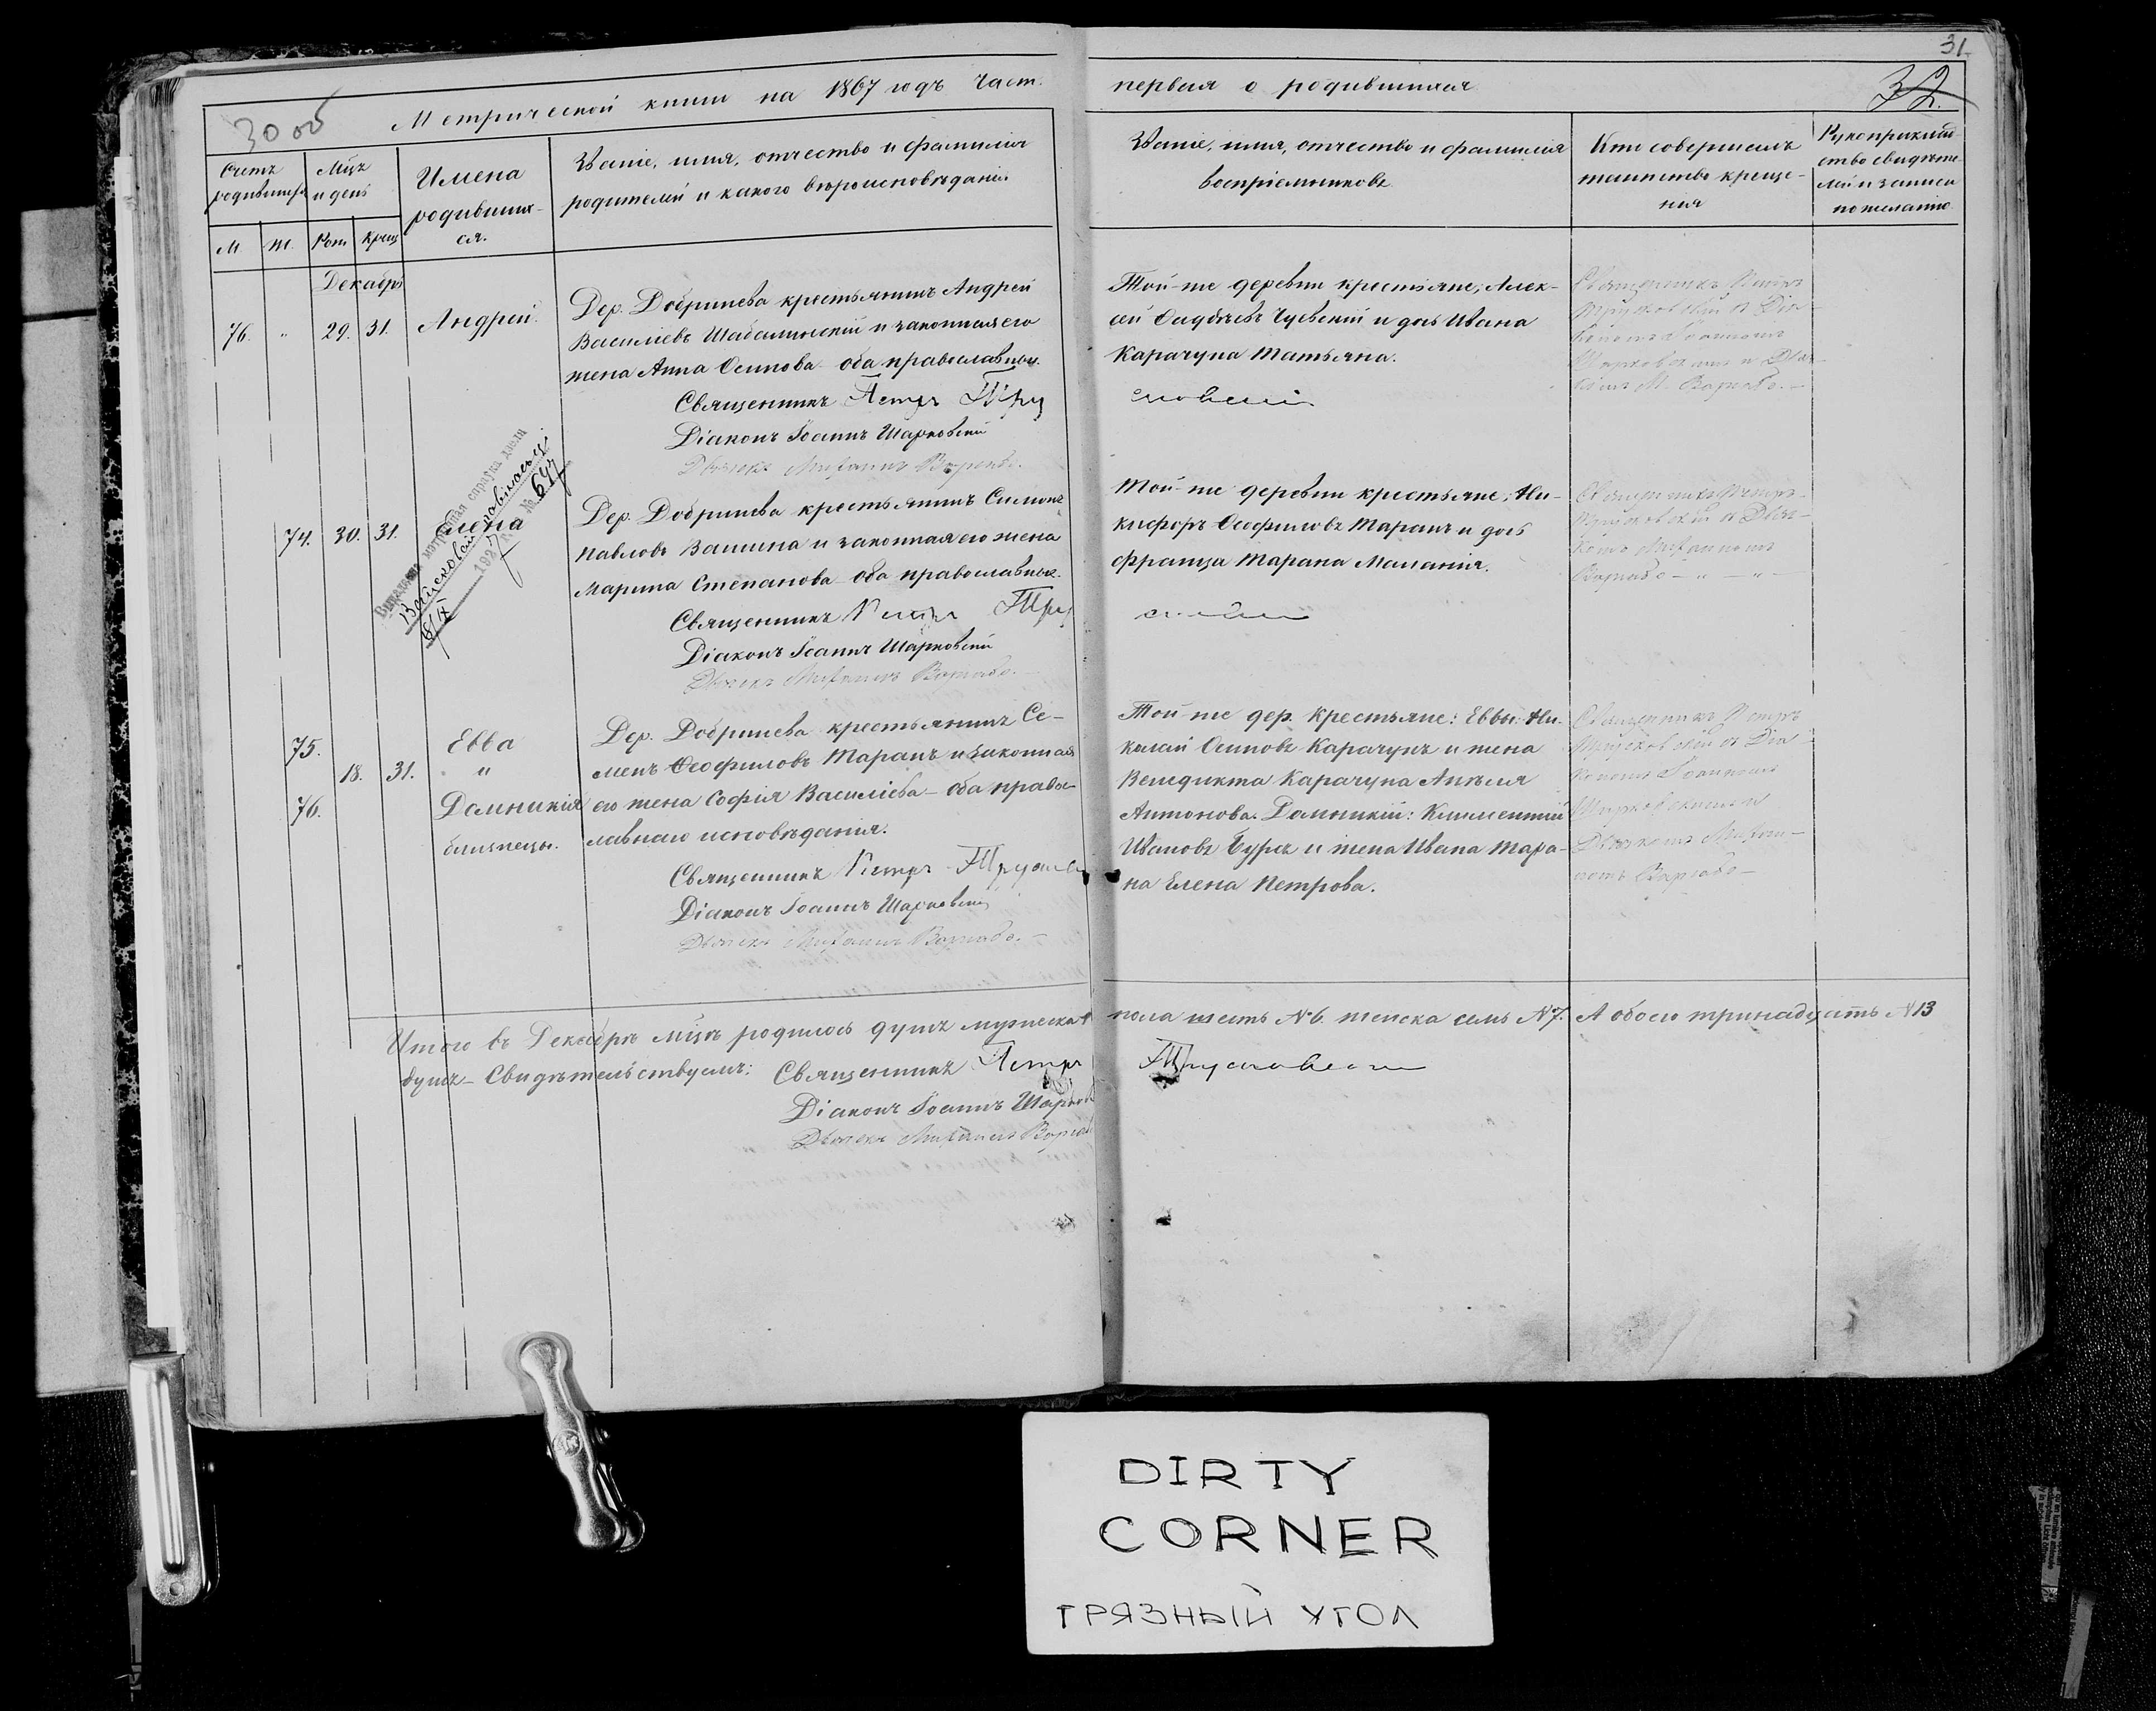 31.
32.
30 об
Метрической книги на 1867 годъ Част.
первая о родившихся
Счетъ родившихся
Мцъ и день
Имена родивших-
ся.
Званіе, имя, отчество и фамилія
родителей и какого вѣроисповѣданія.
Званіе, имя, отчество и фамилія
воспріемниковъ.
Кто совершалъ
таинство креще-
нія
Рукоприклад-
ство свидѣте-
лей о записи
по желанію
М. Ж. Рож Крещ
Декабрь
76. " 29. 31. Андрей.
Дер. Добринева крестьянинъ Андрей
Василіевъ Шабалинскій и законная его
жена Анна Осипова оба православные.
Священникъ Петръ Тру
сковскій
Діаконъ Іоаннъ Шарковскій
Дьячекъ Михаилъ Варнаво.
Той-же деревни крестьяне; Алек-
сей Фадѣевъ Чуевскій и дочь Ивана
Карачуна Татьяна.
Священникъ Петръ
Трусковскій съ Діа-
кономъ Іоанномъ
Шарковскимъ и Дьяч-
комъ М. Варнаво.
Выдавна матрычная справка дзеля
192 г. № 647
74. 30. 31. Елена
Дер. Добринева крестьянинъ Симонъ
Павловъ Вашина и законная его жена
Марина Степанова оба православные.
Священникъ Петръ Тру
сковскій
Діаконъ Іоаннъ Шарковскій
Дьячекъ Михаилъ Варнаво.
Той-же деревни крестьяне; Ни-
кифоръ Ѳеофиловъ Таранъ и дочь
Франца Тарана Маланія.
Священникъ Петръ
Трусковскій съ Дьяч-
комъ Михаиломъ
Варнаво
75. Евва
18. 31. "
76. Домникія
близнецы.
Дер. Добринева крестьянинъ Се-
менъ Ѳеофиловъ Таранъ и законная
его жена Софія Василіева - оба право-
славнаго исповѣданія.
Священникъ Петръ Трусков
Діаконъ Іоаннъ Шарковскій
Дьячекъ Михаилъ Варнаво.
Той-же дер. крестьяне: Еввы: Ни-
колай Осиповъ Карачунъ и жена
Венедикта Карачуна Анѣля
Антонова. Домникіи: Климентій
Ивановъ Буръ и жена Ивана Тара-
на Елена Петрова.
Священникъ Петръ
Трусковскій съ Діа-
кономъ Іоанномъ
Шарковскимъ и
Дьячкомъ Михаи-
ломъ Варнаво
Итого въ Декабрѣ мцѣ родилось душъ мужеска
пола шесть №6. женска семь №7. А обоего тринадцать №13
душъ - Свидѣтельствуемъ: Священникъ Петръ
Трусковскій
Діаконъ Іоаннъ Шарков
Дьячекъ Михаилъ Варнав
DIRTY
CORNER
ГРЯЗНЫЙ УГОЛ